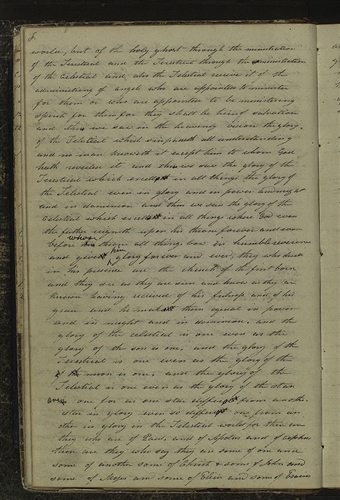 worlds, but of the holy ghost through the ministration
of the Terestrial and the Terestrial through the ministration
of the celestial and also the Telestial receive it of the
administering of angels who are appointed to minister
for them or who are appointed to be ministering
spirits for them for they shall be heirs of salvation
and thus we saw in the heavenly vision the glory
of the Telestial which surpasseth all understanding
and no man knoweth it except him to whom God
hath revealed it and thus we saw the glory of the
Terestrial which excells in all things the glory of
the Telestial even in glory and in power and might
and in dominion and thus we saw the glory of the
celestial which excells in all things where God even
the father reigneth upon his throne forever and ever
before whose throne all things bow in humble reverence
and giveth him glory forever and ever, they who dwell
in his presence are the church of the first born
and they see as they are seen and know as they are
known having received of his fulness and of his
grace and he maketh them equal in power
and in might and in dominion, and the
glory of the celestial is one even as the
glory of the sun is one, and the glory of the
Terestrial is one even as the glory of the
moon is one, and the glory of the
Telestial is one even as the glory of the stars
are one for as one star differeth from another
star in glory even so differeth one from an
other in glory in the Telestial world for these are
they who are of Paul, and of Apollos and of cephas
these are they who say they are some of one and
some of another some of Christ & some of John and
some of Moses and some of Elias and some of Esaias